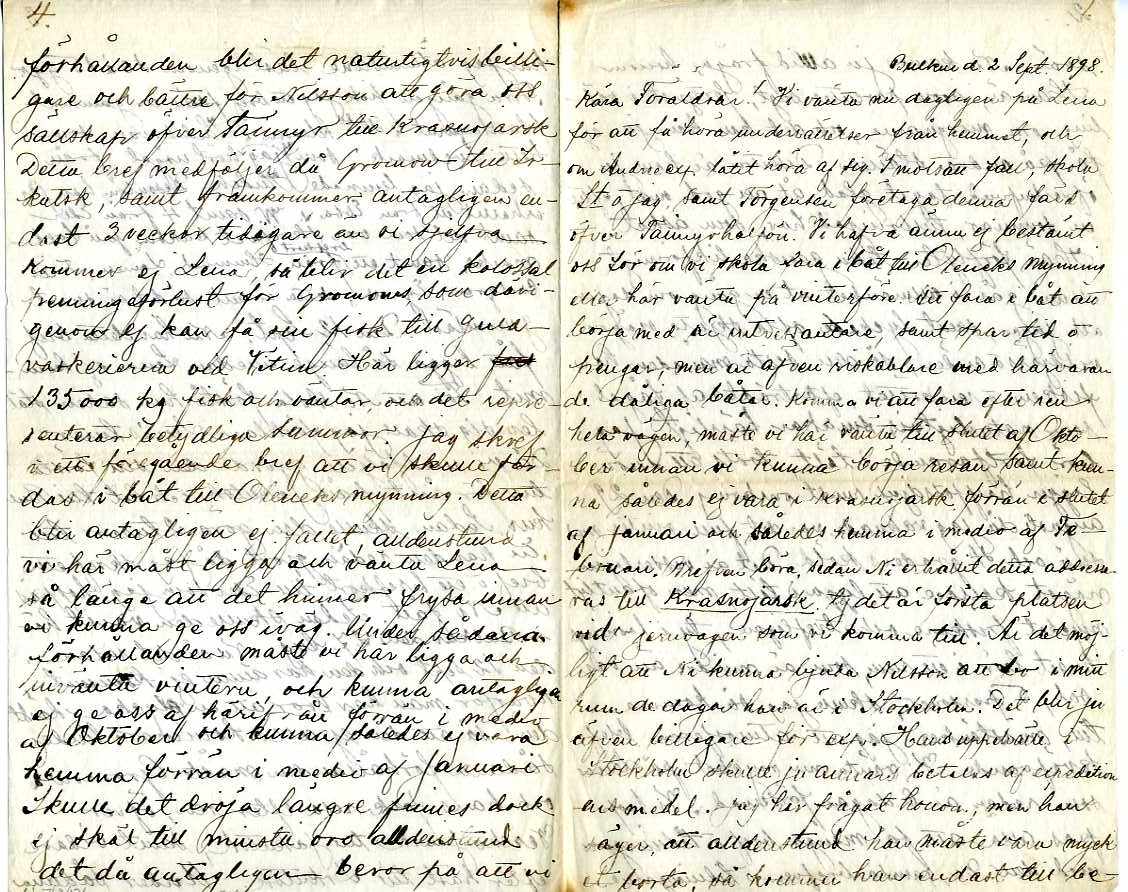 4.
förhållanden blir det naturligtvis billi-
gare och bättre för Nilsson att göra oss
sällskap öfver Taimyr till Krasnojarsk
Detta bref medföljer då Gromow till Ir-
kutsk, samt framkommer antagligen en-
dast 3 veckor tidigare än vi sjelfva
Kommer ej Lena, så blir det en kolossal
penningeförlust för Gromows som däri-
genom ej kan få sin fisk till guld-
vaskerierna vid Vitim. Här ligger
135000 kg fisk och väntar, och det repre-
senterar betydliga summor. Jag skref
i ett föregående bref att vi skulle fär-
das i båt till Oleneks mynning. Detta
blir antagligen ej fallet, alldenstund
vi här måst ligga och vänta Lena
så länge att det hinner frysa innan
vi kunna ge oss iväg. Under sådana
förhållanden måste vi här ligga och
invänta vintern, och kunna antagligen
ej ge oss af härifrån förrän i medio
af Oktober och kunna således ej vara
hemma förrän i medio af Januari
Skulle det dröja längre finnes dock
ej skäl till minsta oro alldenstund
det då antagligen beror på att vi
1
Bulkur d. 2 Sept. 1898.
Kära Föräldrar! Vi vänta nu dagligen på Lena
för att få höra underrättelser från hemmet, och
om Andrée låtit höra af sig. I motsatt fall, skola
St o jag, samt Torgensen företaga denna färd
öfver Taimyrhalfön. Vi hafva ännu ej bestämt
oss för om vi skola fara i båt till Oleneks mynning
eller här vänta på vinterföre. Att fara i båt att
börja med är intressantare, samt spar tid o
pengar, men är äfven riskablare med härvaran
de dåliga båtar. Komma vi att fara efter ren
hela vägen, måste vi här vänta till slutet af Okto-
ber innan vi kunna börja resan samt kun-
na således ej vara i Krasnojarsk förrän i slutet
af Januari och således hemma i medio af Fe-
bruari. Brefven böra, sedan Ni erhållit detta adresse-
ras till Krasnojarsk. Ty det är första platsen
vid jernvägen som vi komma till. Är det möj-
ligt att Ni kunna bjuda Nilsson att bo i mitt
rum de dagar han är i Stockholm. Det blir ju
äfven billigare för exp. Hans uppehälle i
Stockholm skulle ju annars betalas af expedition
ens medel. Jag har frågat honom, men han
säger, att alldenstund han måste vara myck
et borta, så kommer han endast till be-